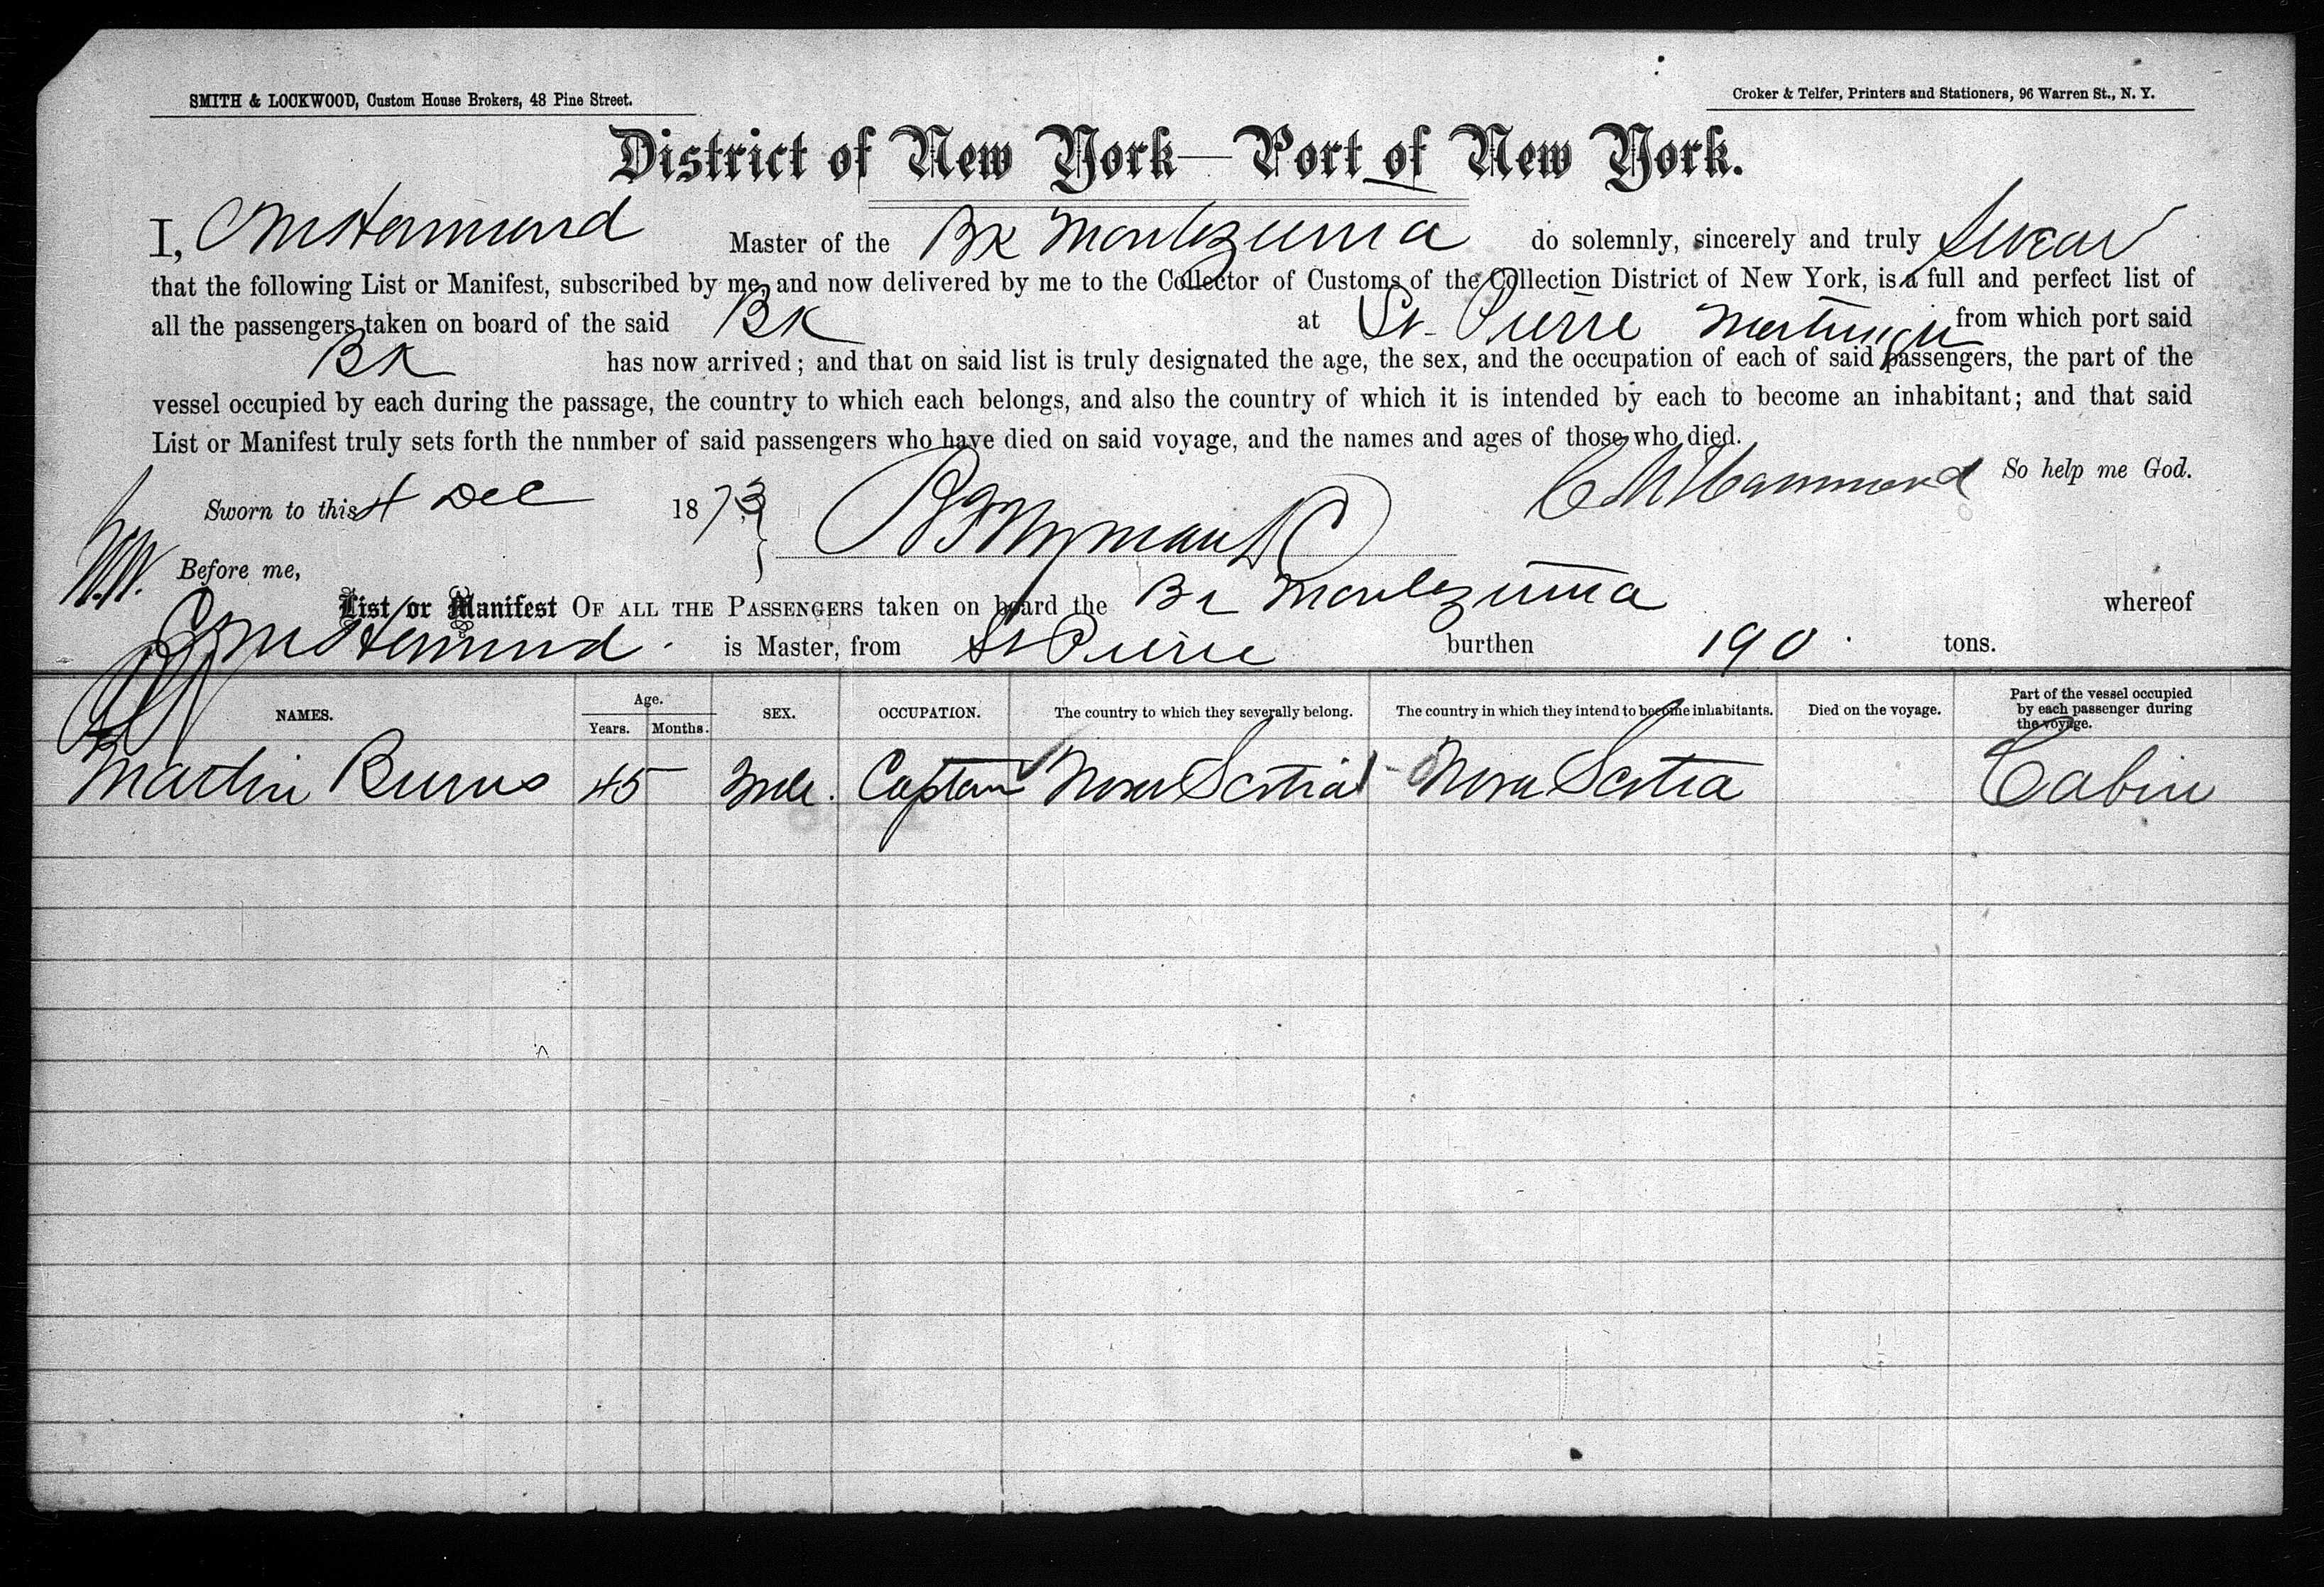 SMITH & LOCKWOOD, Custom House Brokers, 48 Pine Street.
Croker & Telfer, Printers and Stationers, 96 Warren St., N. Y.
District of New York—Port of New York.
I, C M Hammond Master of the Bk Montezuma do solemnly, sincerely and truly swear
that the following List or Manifest, subscribed by me, and now delivered by me to the Collector of Customs of the Collection District of New York, is a full and perfect list of
all the passengers taken on board of the said Bk at St. Pierre from which port said
Bk has now arrived; and that on said list is truly designated the age, the sex, and the occupation of each of said passengers, the part of the
vessel occupied by each during the passage, the country to which each belongs, and also the country of which it is intended by each to become an inhabitant; and that said
List or Manifest truly sets forth the number of said passengers who have died on said voyage, and the names and ages of those who died.
So help me God.
C M Hammond
Sworn to this 4 Dec 1873
Before me,
List or Manifest OF ALL THE PASSENGERS taken on board the Montezuma whereof
C M Hammond is Master, from St Pierre burthen 190 tons.
NAMES. Age. Years. Months. SEX. OCCUPATION. The country to which they severally belong. The country in which they intend to become inhabitants. Died on the voyage. Part of the vessel occupied by each passenger during the voyage.
Martin Burns 45 Male. Captain Nova Scotia Nova Scotia Cabin